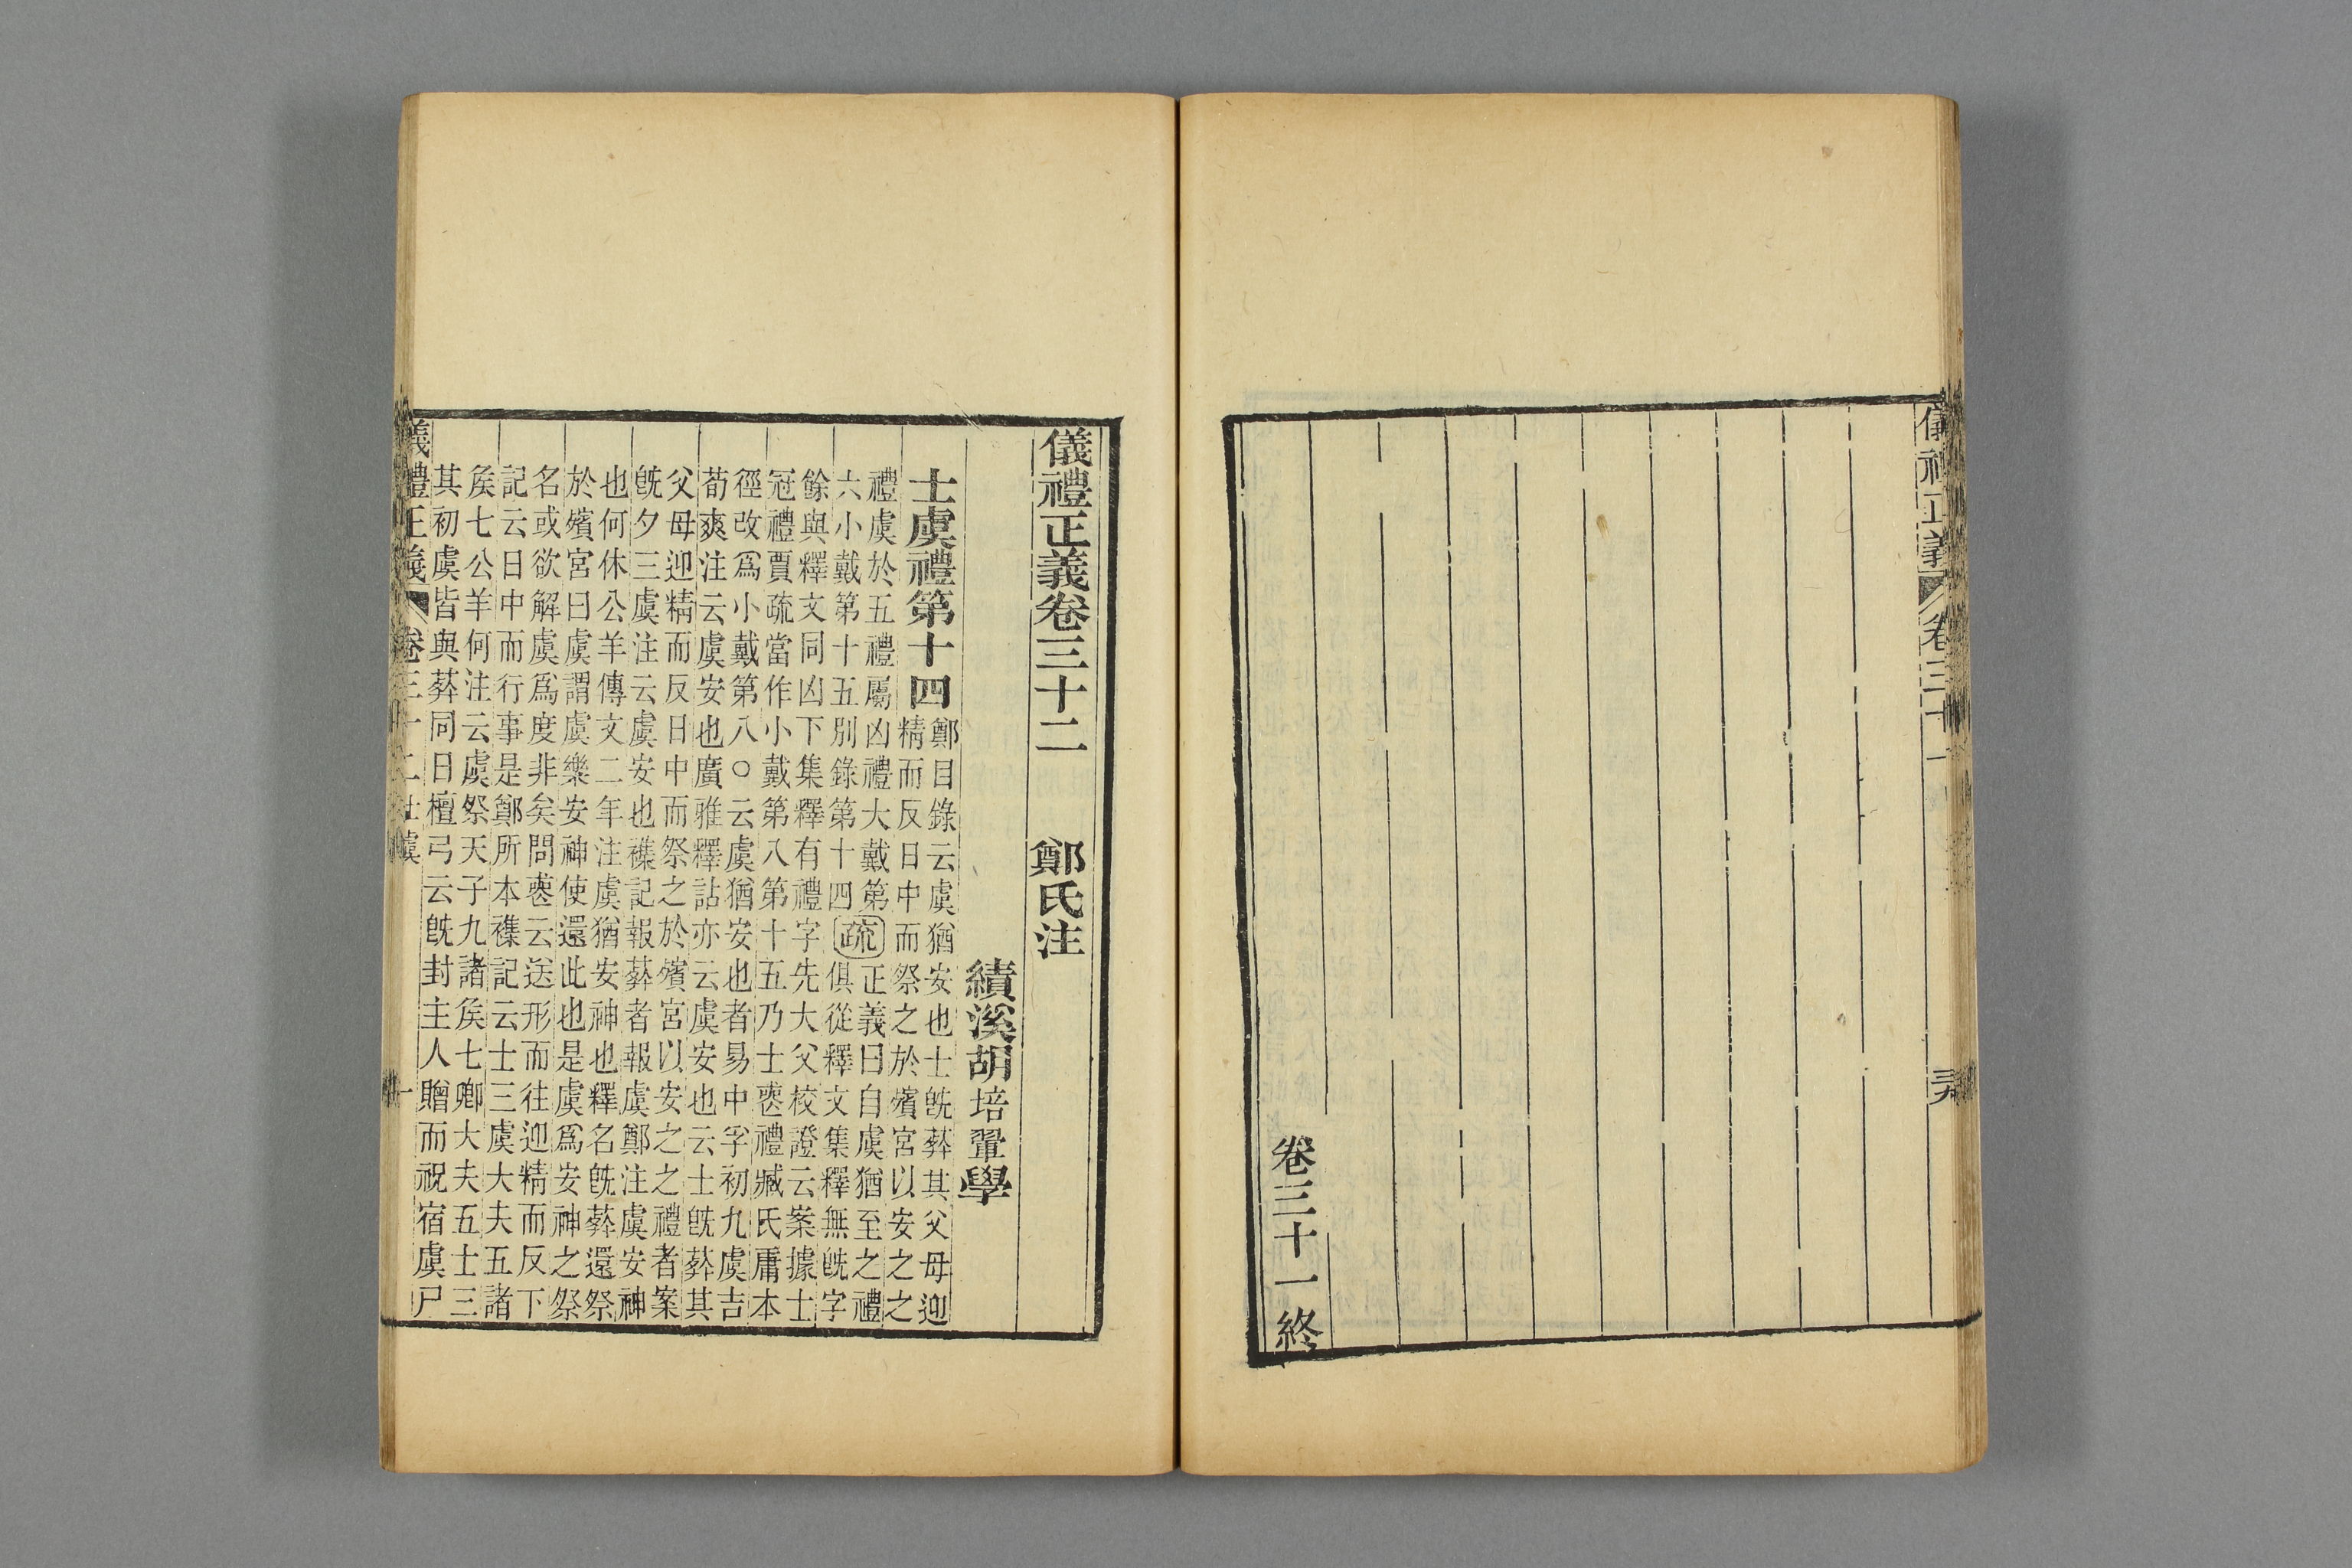 儀禮正義 卷三十一
卷三十一終
儀禮正義卷三十二 鄭氏注
績溪胡培翬學
士虞禮第十四
鄭目錄云虞猶安也士旣葬其父母迎
精而反日中而祭之於殯宮以安之之
禮虞於五禮屬凶禮大戴第
六小戴第十五別錄第十四
疏
正義曰自虞猶至之禮
俱從釋文集釋無旣字
餘與釋文同凶下集釋有禮字先大父校證云案據士
冠禮賈疏當作小戴第八第十五乃士喪禮臧氏庸本
徑改爲小戴第八○云虞猶安也者易中孚初九虞吉
荀爽注云虞安也廣雅釋詁亦云虞安也云士旣葬其
父母迎精而反日中而祭之於殯宮以安之之禮者案
旣夕三虞注云虞安也襍記報葬者報虞鄭注虞安神
也何休公羊傳文二年注虞猶安神也釋名旣葬還祭
於殯宮曰虞謂虞樂安神使還此也是虞爲安神之祭
名或欲解虞爲度非矣問喪云送形而往迎精而反下
記云日中而行事是鄭所本襍記云士三虞大夫五諸
矦七公羊何注云虞祭天子九諸矦七卿大夫五士三
其初虞皆與葬同日檀弓云旣封主人贈而祝宿虞尸
儀禮正義 卷三十二 士虞 一